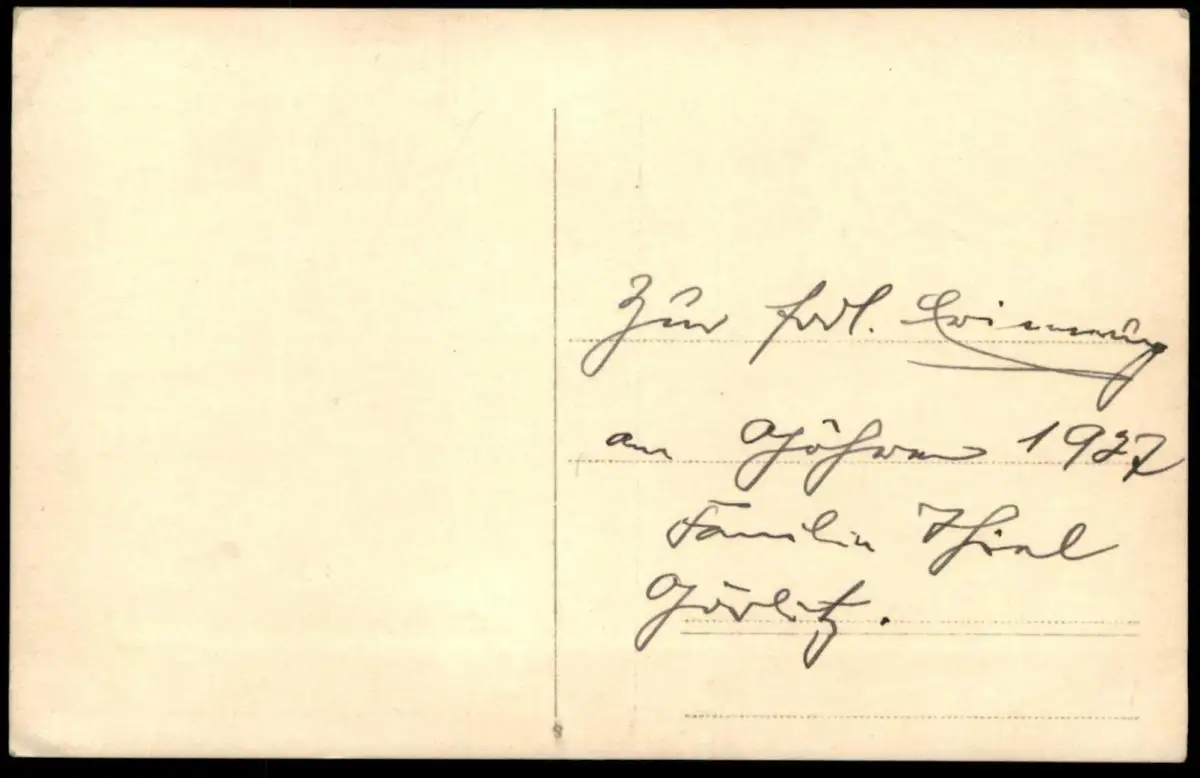 Zur frdl. Erinnerung
an Göhren 1927
Familie Thiel
Görlitz.